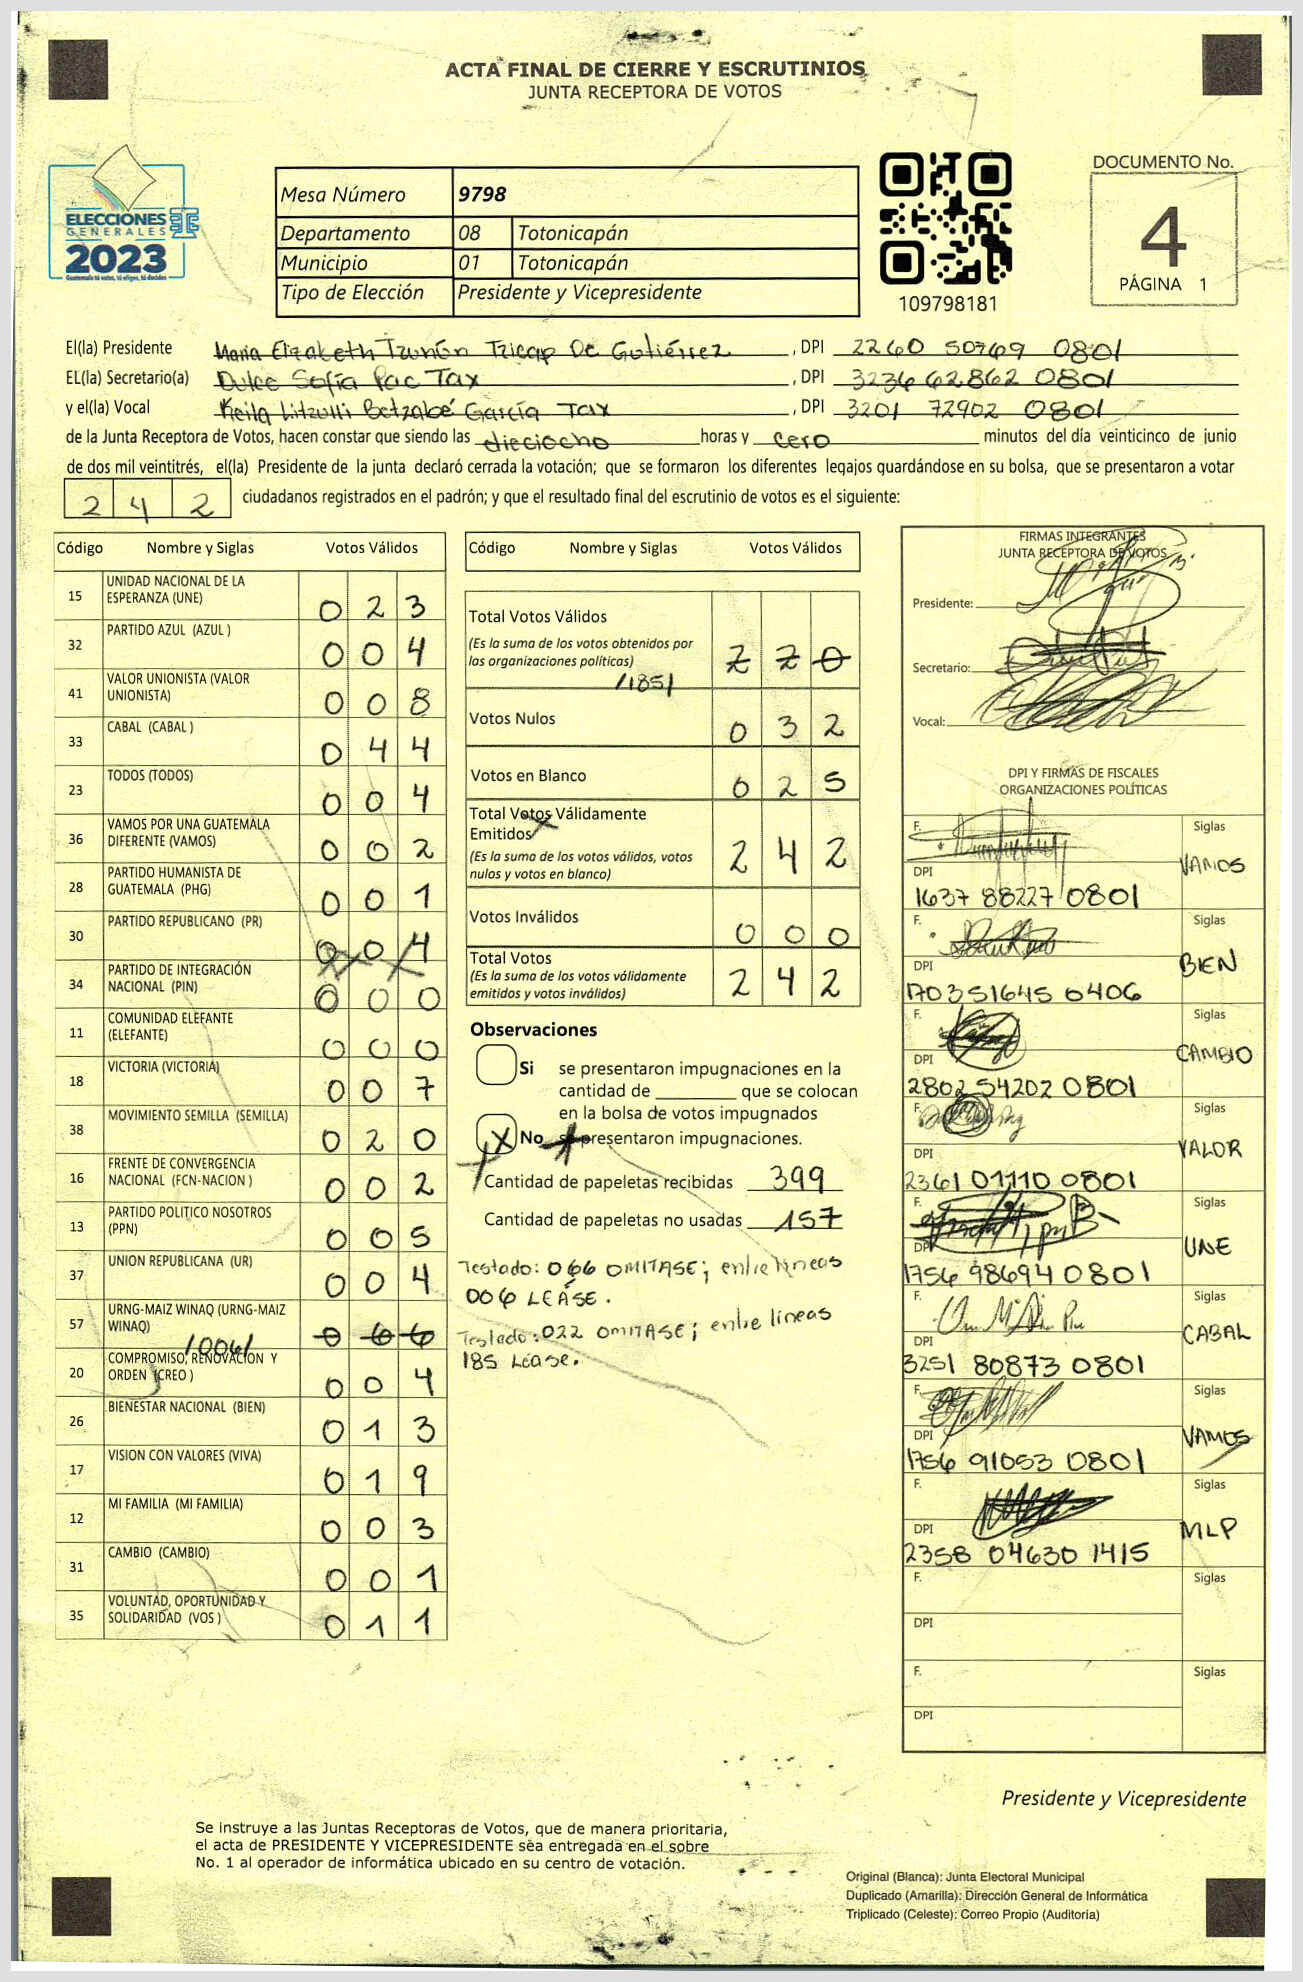 ACTA FINAL DE CIERRE Y ESCRUTINIOS
JUNTA RECEPTORA DE VOTOS
ELECCIONES
GENERALES
2023
Mesa Número 9798
Departamento 08 Totonicapán
Municipio 01 Totonicapán
Tipo de Elección Presidente y Vicepresidente
109798181
DOCUMENTO No.
4
PÁGINA 1
El(la) Presidente María Elizabeth Tzunún Tzicap De Gutiérrez, DPI 2260 50769 0801
EL(la) Secretario(a) Dulce Sofía Pac Tax, DPI 3236 62862 0801
y el(la) Vocal Keila Litzulli Betzabé García Tax, DPI 3201 72902 0801
de la Junta Receptora de Votos, hacen constar que siendo las dieciocho horas y cero minutos del día veinticinco de junio
de dos mil veintitrés, el(la) Presidente de la junta declaró cerrada la votación; que se formaron los diferentes legajos guardándose en su bolsa, que se presentaron a votar
242 ciudadanos registrados en el padrón; y que el resultado final del escrutinio de votos es el siguiente:
Código Nombre y Siglas Votos Válidos
15 UNIDAD NACIONAL DE LA ESPERANZA (UNE) 023
32 PARTIDO AZUL (AZUL ) 004
41 VALOR UNIONISTA (VALOR UNIONISTA) 008
33 CABAL (CABAL ) 044
23 TODOS (TODOS) 004
36 VAMOS POR UNA GUATEMALA DIFERENTE (VAMOS) 002
28 PARTIDO HUMANISTA DE GUATEMALA (PHG) 001
30 PARTIDO REPUBLICANO (PR) 004
34 PARTIDO DE INTEGRACIÓN NACIONAL (PIN) 000
11 COMUNIDAD ELEFANTE (ELEFANTE) 000
18 VICTORIA (VICTORIA) 007
38 MOVIMIENTO SEMILLA (SEMILLA) 020
16 FRENTE DE CONVERGENCIA NACIONAL (FCN-NACION ) 002
13 PARTIDO POLITICO NOSOTROS (PPN) 005
37 UNION REPUBLICANA (UR) 004
57 URNG-MAIZ WINAQ (URNG-MAIZ WINAQ) 066
/006/
20 COMPROMISO, RENOVACION Y ORDEN (CREO ) 004
26 BIENESTAR NACIONAL (BIEN) 013
17 VISION CON VALORES (VIVA) 019
12 MI FAMILIA (MI FAMILIA) 003
31 CAMBIO (CAMBIO) 001
35 VOLUNTAD, OPORTUNIDAD Y SOLIDARIDAD (VOS ) 011
Código Nombre y Siglas Votos Válidos
Total Votos Válidos
(Es la suma de los votos obtenidos por
las organizaciones políticas) 220
/185/
Votos Nulos 032
Votos en Blanco 025
Total Votos Válidamente
Emitidos
(Es la suma de los votos válidos, votos
nulos y votos en blanco) 242
Votos Inválidos 000
Total Votos
(Es la suma de los votos válidamente
emitidos y votos inválidos) 242
Observaciones
Si se presentaron impugnaciones en la
cantidad de ________ que se colocan
en la bolsa de votos impugnados
X No se presentaron impugnaciones.
Cantidad de papeletas recibidas 399
Cantidad de papeletas no usadas 157
Testado: 066 OMITASE; entre líneas
006 LEÁSE.
Testado: 022 OMITASE; entre líneas
185 Léase.
FIRMAS INTEGRANTES
JUNTA RECEPTORA DE VOTOS
Presidente:
Secretario:
Vocal:
DPI Y FIRMAS DE FISCALES
ORGANIZACIONES POLÍTICAS
F. Siglas
DPI VAMOS
1637 88227 0801
F. Siglas
DPI BIEN
1703 51645 0406
F. Siglas
DPI CAMBIO
2802 54202 0801
F. Siglas
DPI VALOR
2361 01110 0801
F. Siglas
DPI UNE
1756 98694 0801
F. Siglas
DPI CABAL
3251 80873 0801
F. Siglas
DPI VAMOS
1756 91053 0801
F. Siglas
DPI MLP
2358 04630 1415
F. Siglas
DPI
F. Siglas
DPI
Presidente y Vicepresidente
Se instruye a las Juntas Receptoras de Votos, que de manera prioritaria,
el acta de PRESIDENTE Y VICEPRESIDENTE sea entregada en el sobre
No. 1 al operador de informática ubicado en su centro de votación.
Original (Blanca): Junta Electoral Municipal
Duplicado (Amarilla): Dirección General de Informática
Triplicado (Celeste): Correo Propio (Auditoría)